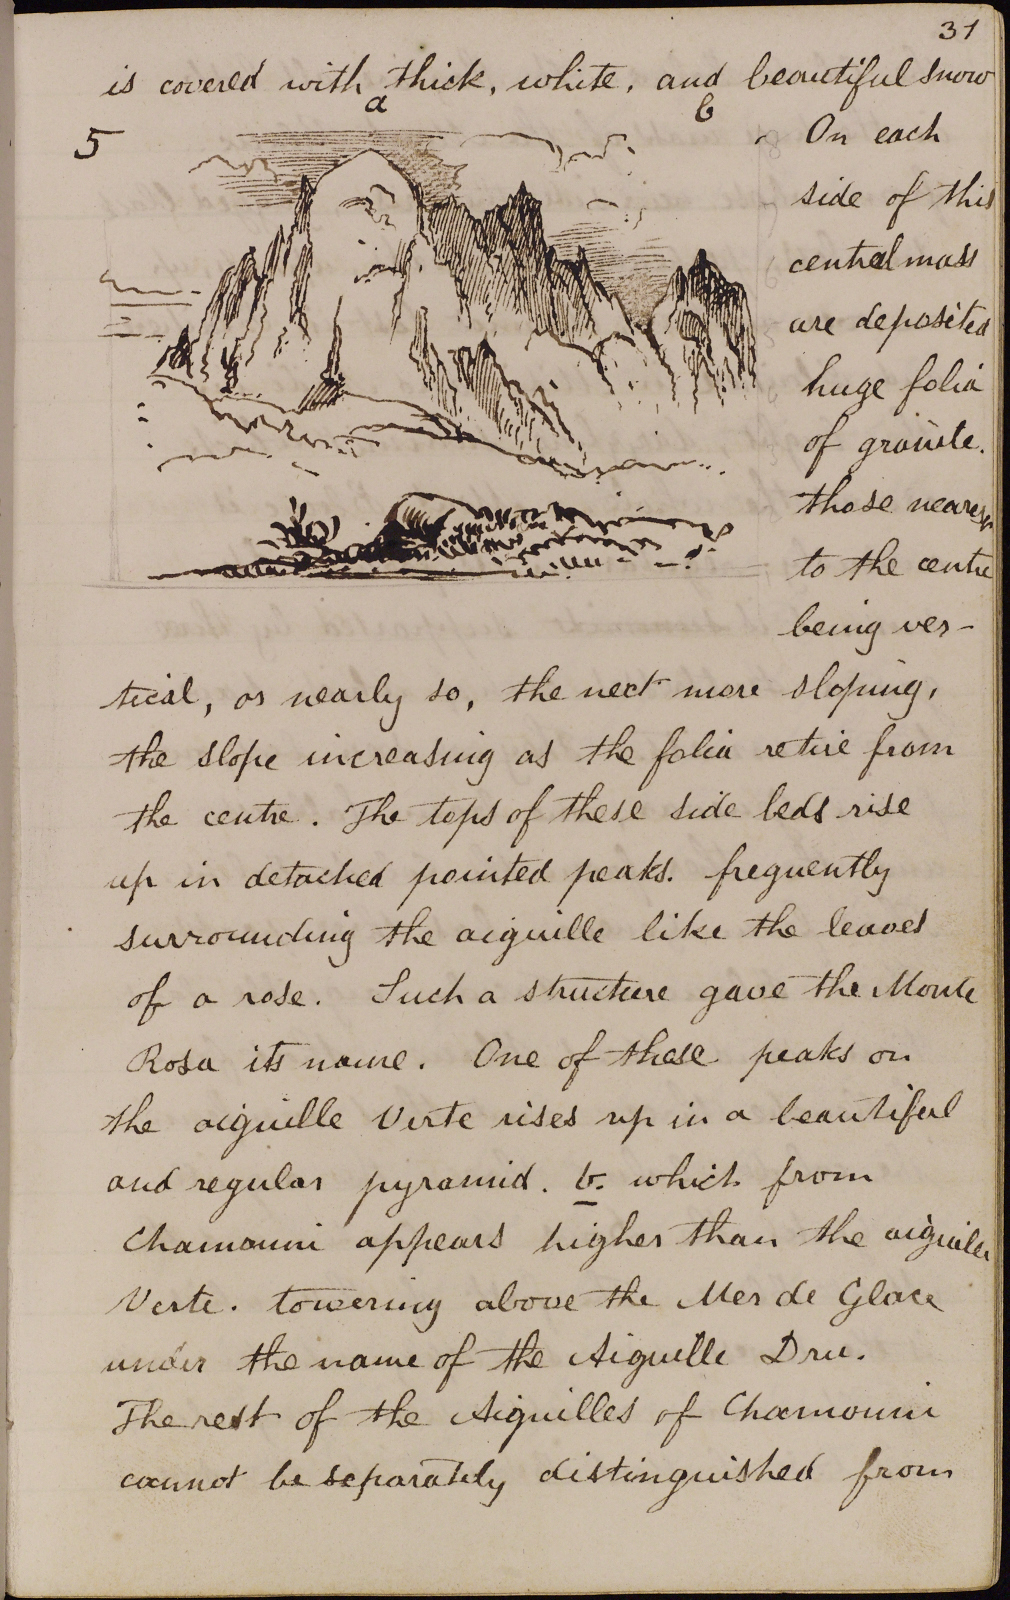 31
is covered with thick, white, and beautiful snow
a b
5
On each
side of this
central mass
are deposited
huge folia
of granite.
those nearest
to the centre
being ver-
tical, or nearly so, the next more sloping,
the slope increasing as the folia retire from
the centre. The tops of these side beds rise
up in detached pointed peaks. frequently
surrounding the aiguille like the leaves
of a rose. Such a structure gave the Monte
Rosa its name. One of these peaks on
the aiguille Verte rises up in a beautiful
and regular pyramid. b. which from
Chamouni appears higher than the aiguille
Verte. towering above the Mer de Glace
under the name of the Aiguille Dru.
The rest of the Aiguilles of Chamouni
cannot be separately distinguished from